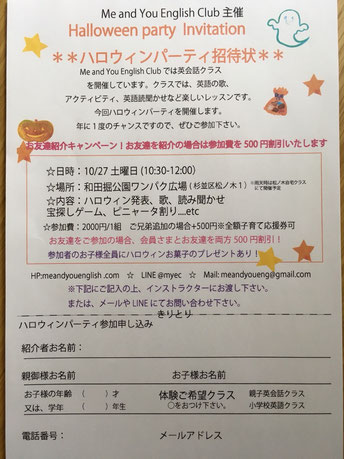 Me and You English Club 主催
Halloween party Invitation
＊＊ハロウィンパーティ招待状＊＊
Me and You English Club では英会話クラス
を開催しています。クラスでは、英語の歌、
アクティビティ、英語読聞かせなど楽しいレッスンです。
今回ハロウィンパーティを開催します。
年に１度のチャンスですので、ぜひご参加下さい。
お友達紹介キャンペーン！お友達を紹介の場合は参加費を 500 円割引いたします
☆日時：10/27 土曜日 (10:30-12:00)
☆場所：和田堀公園ワンパク広場（杉並区松ノ木１）
※雨天時は松ノ木自宅クラス
にて開催予定
☆内容：ハロウィン発表、歌、読み聞かせ
宝探しゲーム、ピニャータ割り...etc
☆参加費：2000円/1組　ご兄弟追加の場合+500円※全額子育て応援券可
お友達をご参加の場合、会員さまとお友達を両方 500 円割引！
参加者のお子様全員にハロウィンお菓子のプレゼントあり！
HP:meandyouenglish .com　☆　LINE @myec　☆　Mail: meandyoueng@gmail.com
※下記にご記入の上、インストラクターにお渡し下さい。
または、メールや LINE にてお問い合わせ下さい。
きりとり
ハロウィンパーティ参加申し込み
紹介者お名前：
親御様お名前　お子様お名前
お子様の年齢　（　　）才　体験ご希望クラス　親子英会話クラス
又は、学年　（　　）年生　〇をおつけ下さい。　小学校英語クラス
電話番号：　メールアドレス